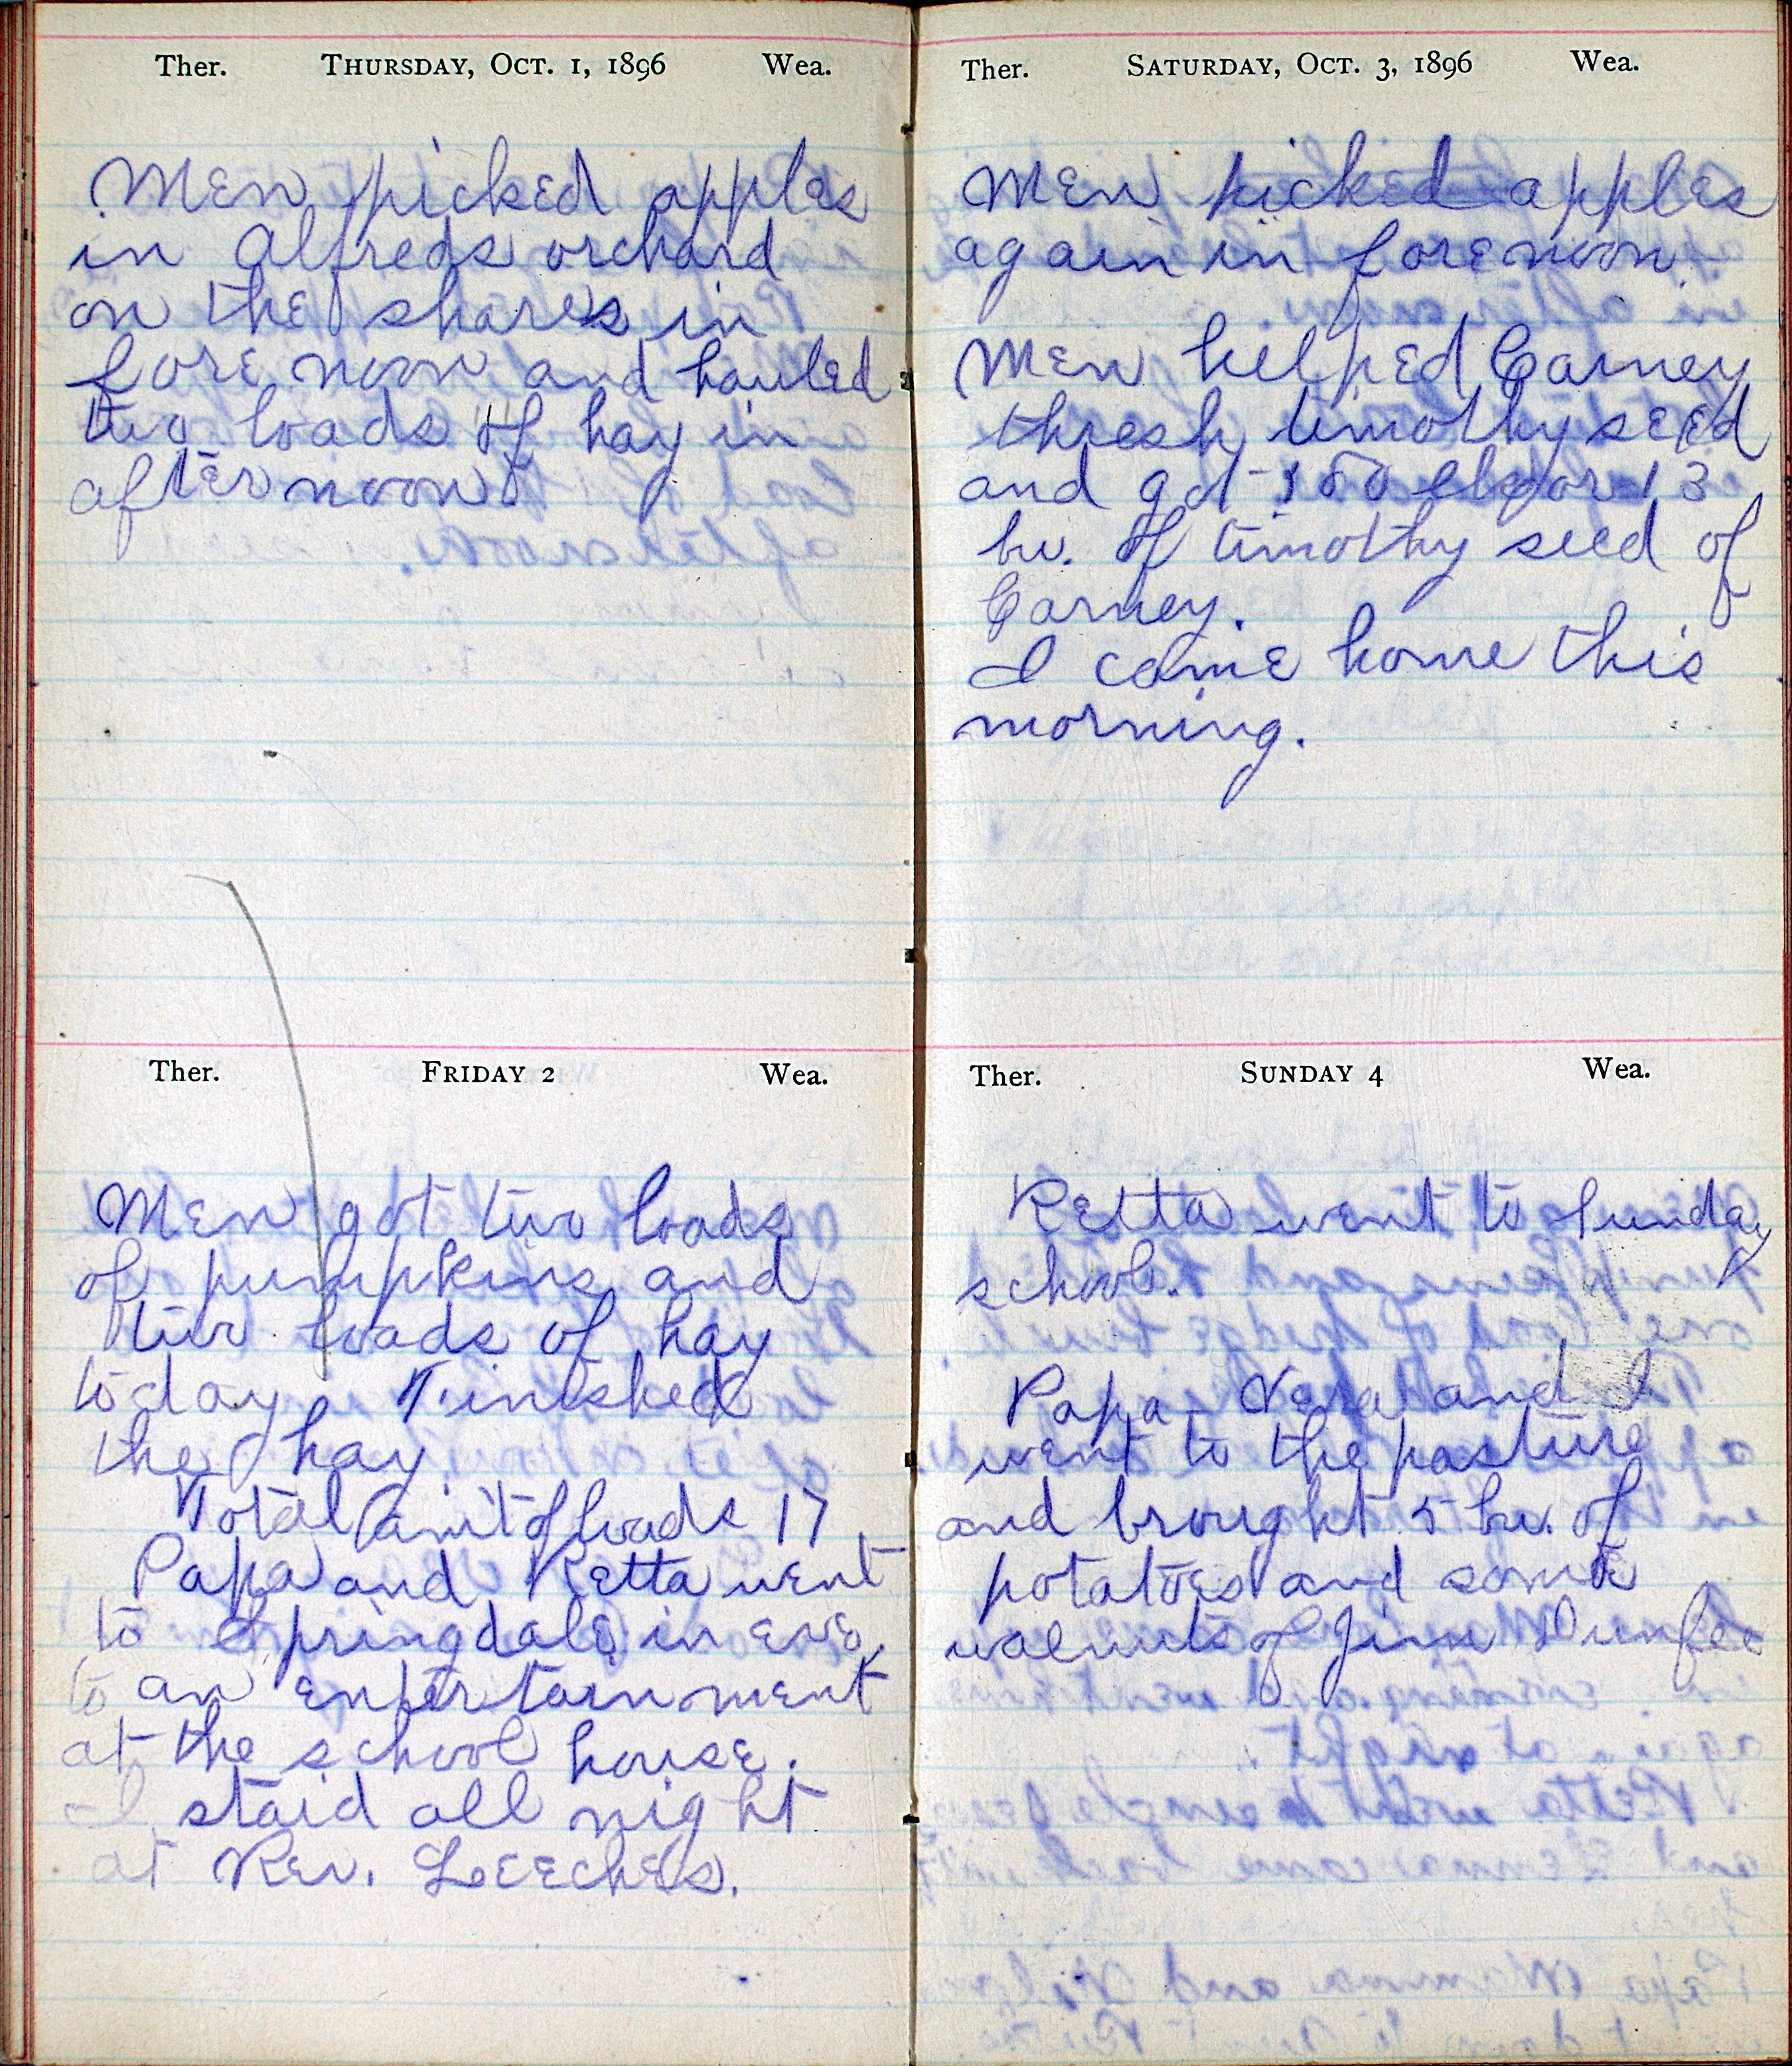 Ther. THURSDAY, OCT. 1, 1896 Wea.
Men picked apples
in Alfreds orchard
on the shares in
fore noon and hauled
two loads of hay in
after noon.
Ther. FRIDAY 2 Wea.
Men got two loads
of pumpkins and
two loads of hay
today Finished
the hay
Total amt of loads 17
Papa and Retta went
to Springdale in eve.
to an entertainment
at the school house.
I staid all night
at Rev. Leeches.
Ther. SATURDAY, OCT. 3, 1896 Wea.
Men picked apples
again in forenoon
Men helped Carney
thresh timothy seed
and got 13
bu. of timothy seed of
Carney.
I came home this
morning.
Ther. SUNDAY 4 Wea.
Retta went to Sunday
school.
Papa Vera and I
went to the pasture
and brought 5 bu. of
potatoes and some
walnuts of Jim Dunfee